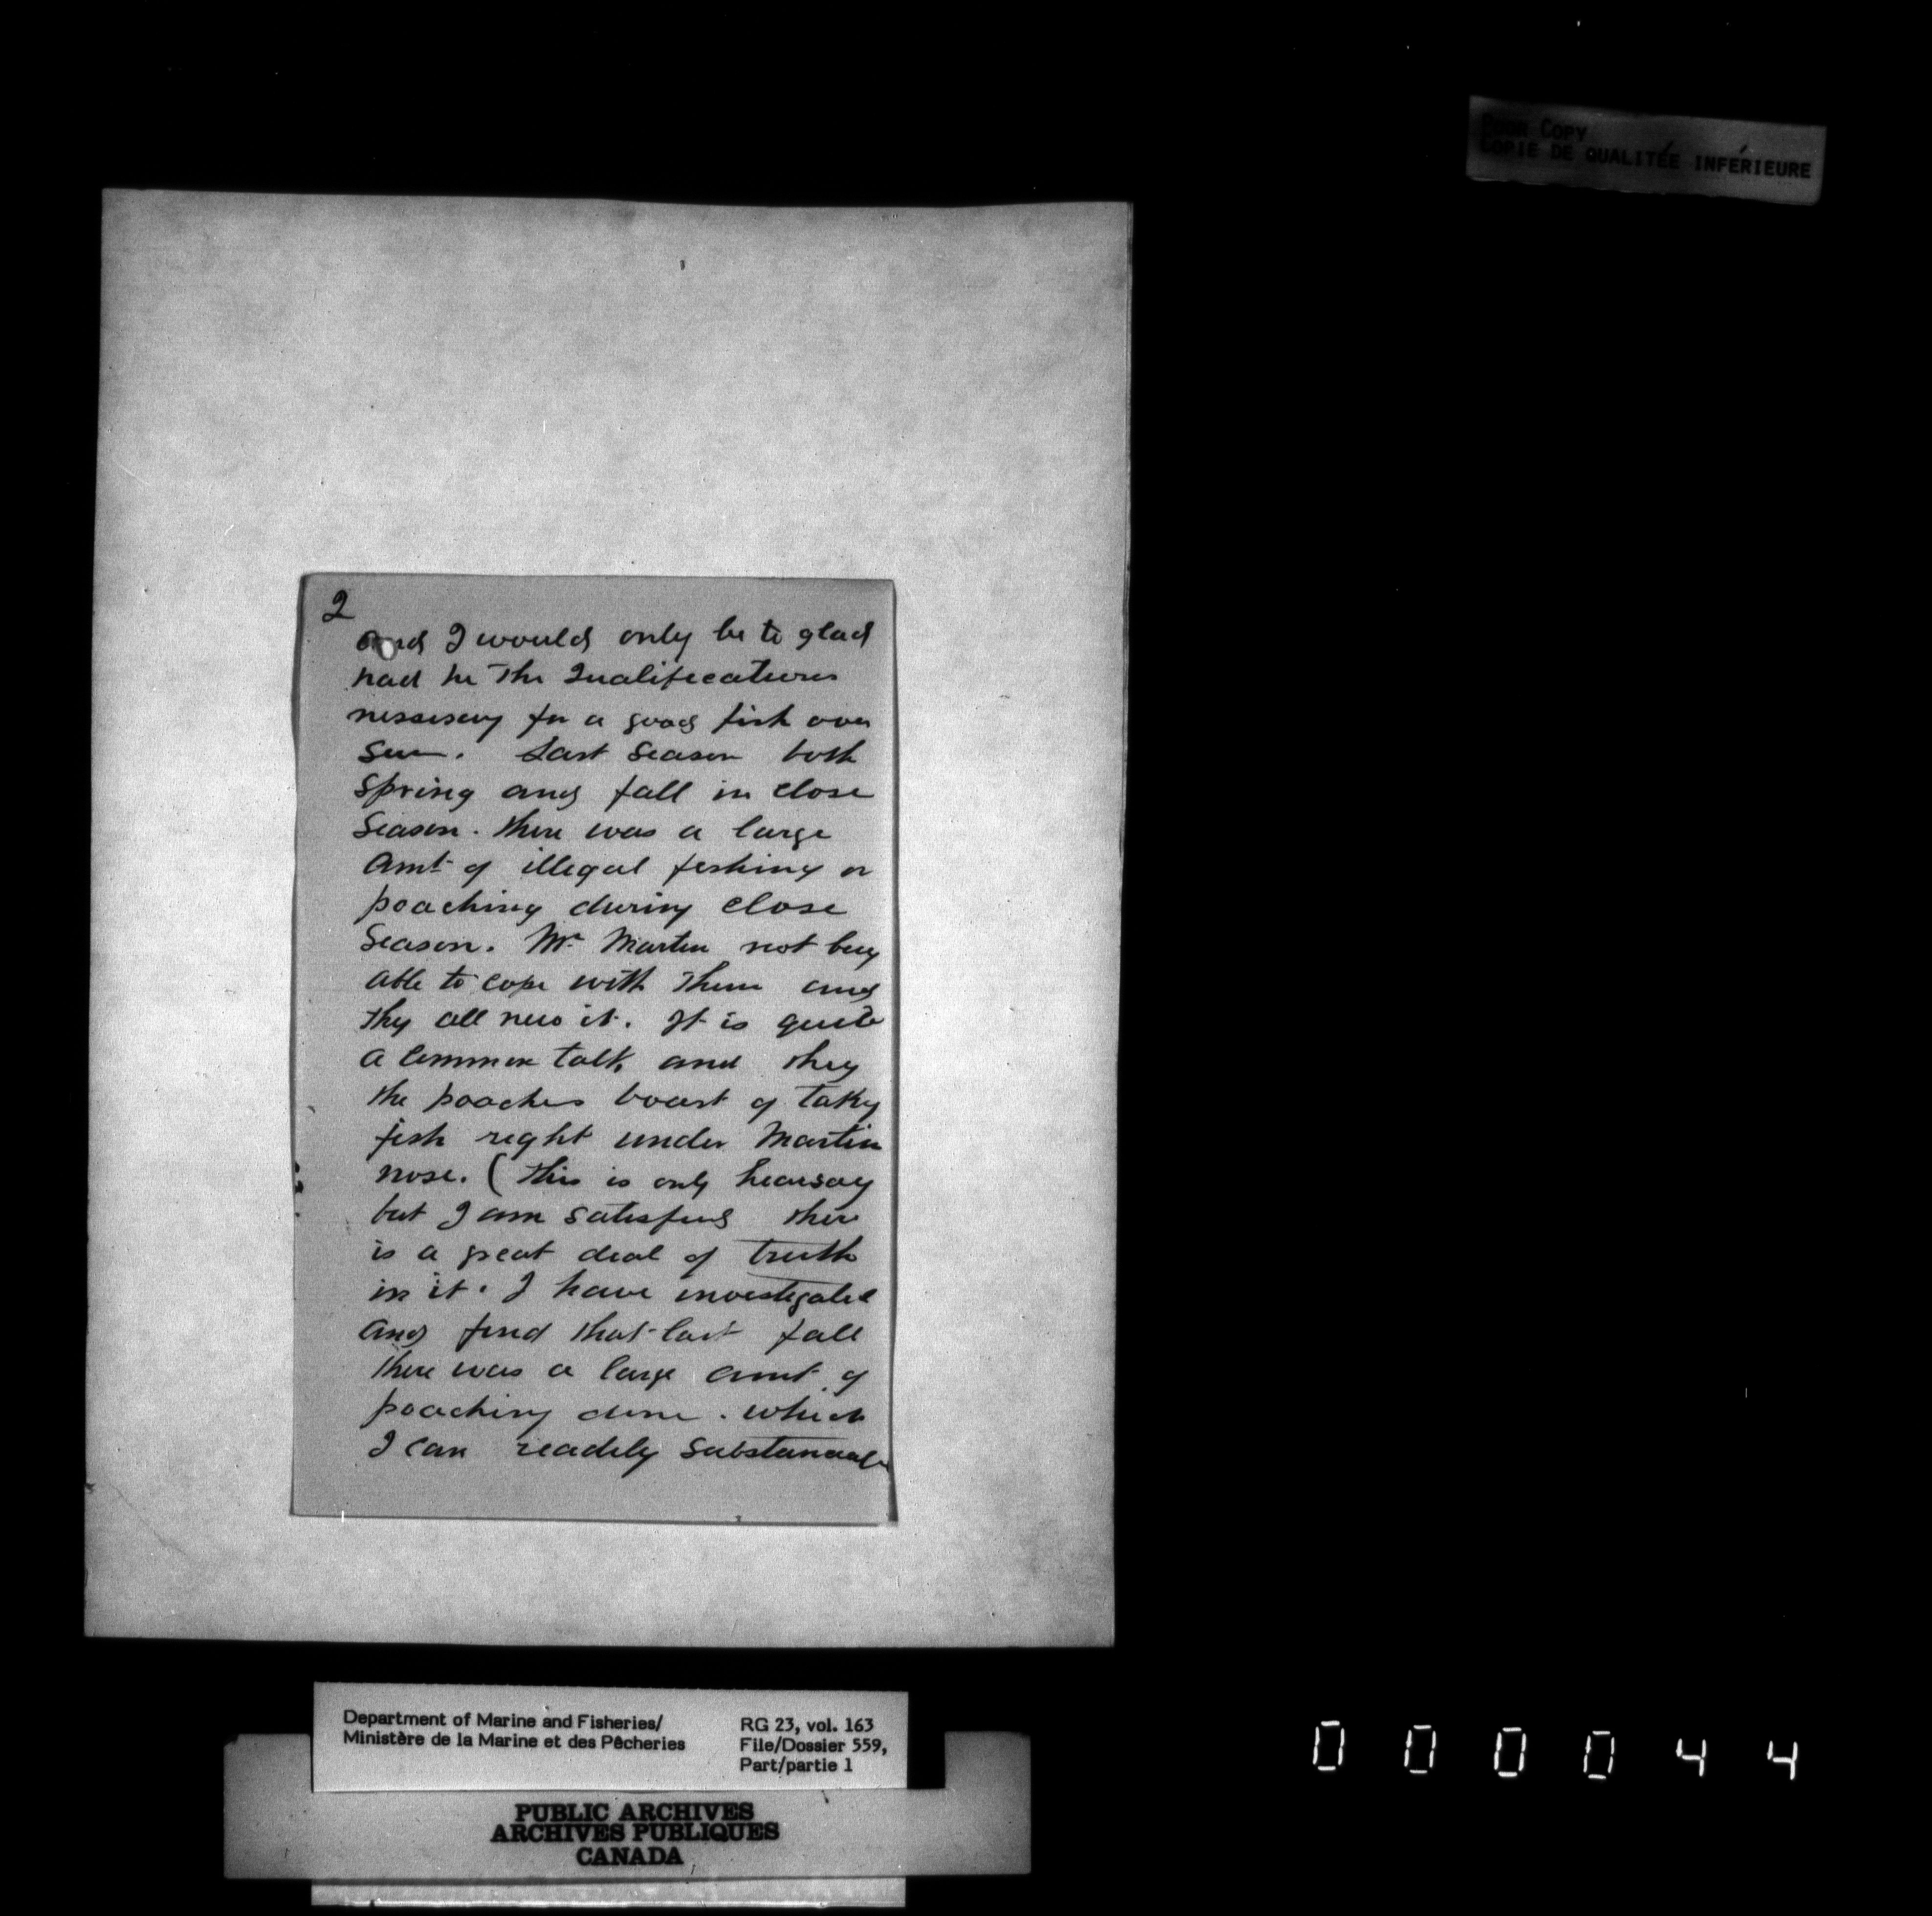 POOR COPY
COPIE DE QUALITÉE INFÉRIEURE
2
and I would only be to glad
had he the Qualifications
nessisery for a good fish over
seer. Last season both
spring and fall in close
season. there was a large
amt of illegal fishing or
poaching during close
season. Mr Martin not being
able to cope with them and
they all new it. It is quite
a common talk and they
the poachers boast of taking
fish right under Martin
nose. (this is only hearsay
but I am satisfied there
is a great deal of truth
in it. I have investigated
and find that last fall
there was a large amt of
poaching done. which
I can readily substanciate
Department of Marine and Fisheries/
Ministère de la Marine et des Pêcheries
RG 23, vol. 163
File/Dossier 559,
Part/partie 1
PUBLIC ARCHIVES
ARCHIVES PUBLIQUES
CANADA
000044